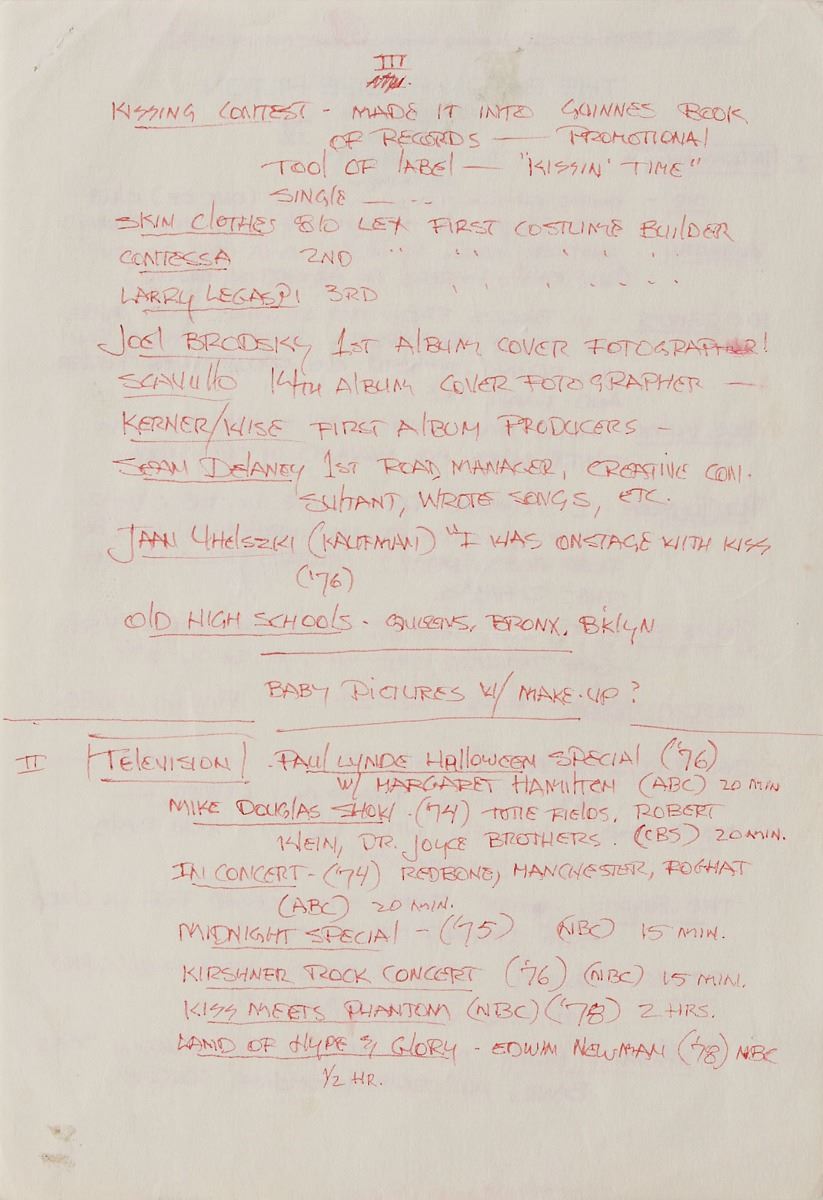 III
KISSING CONTEST - MADE IT INTO GUINNES BOOK
OF RECORDS — PROMOTIONAL
TOOL OF LABEL — "KISSIN' TIME"
SINGLE — - -
SKIN CLOTHES 8/0 LEX FIRST COSTUME BUILDER
CONTESSA 2ND " " " "
LARRY LEGASPI 3RD " " " "
JOEL BRODSKY 1ST ALBUM COVER FOTOGRAPHER!
SCAVULLO 14TH ALBUM COVER FOTOGRAPHER —
KERNER/WISE FIRST ALBUM PRODUCERS -
SEAN DELANEY 1ST ROAD MANAGER, CREATIVE CON-
SULTANT, WROTE SONGS, ETC.
JAAN UHELSZKI (KAUFMAN) "I WAS ONSTAGE WITH KISS
('76)
OLD HIGH SCHOOLS - QUEENS, BRONX, BKLYN
BABY PICTURES W/ MAKE-UP?
II TELEVISION - PAUL LYNDE HALLOWEEN SPECIAL ('76)
W/ MARGARET HAMILTON (ABC) 20 MIN
MIKE DOUGLAS SHOW - ('74) TOTIE FIELDS, ROBERT
KLEIN, DR. JOYCE BROTHERS. (CBS) 20 MIN.
IN CONCERT - ('74) REDBONE, MANCHESTER, FOGHAT
(ABC) 20 MIN.
MIDNIGHT SPECIAL - ('75) (NBC) 15 MIN.
KIRSHNER ROCK CONCERT ('76) (NBC) 15 MIN.
KISS MEETS PHANTOM (NBC) ('78) 2 HRS.
LAND OF HYPE & GLORY - EDWIN NEWMAN ('78) NBC
1/2 HR.